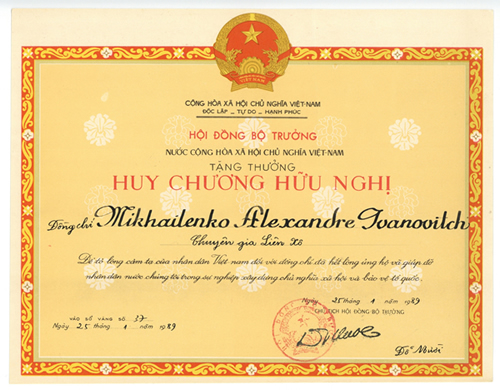 CỘNG HÒA XÃ HỘI CHỦ NGHĨA VIỆT-NAM
ĐỘC LẬP _ TỰ DO _ HẠNH PHÚC
HỘI ĐỒNG BỘ TRƯỞNG
NƯỚC CỘNG HÒA XÃ HỘI CHỦ NGHĨA VIỆT-NAM
TẶNG THƯỞNG
HUY CHƯƠNG HỮU NGHỊ
Đồng chí Mikhailenko Alexandre Ivanovitch
Chuyên gia Liên Xô
Để tỏ lòng cảm tạ của nhân dân Việt Nam đối với đồng chí đã hết lòng ủng hộ và giúp đỡ
nhân dân nước chúng tôi trong sự nghiệp xây dựng chủ nghĩa xã hội và bảo vệ tổ quốc.
VÀO SỔ VÀNG SỐ 37
Ngày 25 tháng 1 năm 1989
Ngày 25 tháng 1 năm 1989
CHỦ TỊCH HỘI ĐỒNG BỘ TRƯỞNG
Đỗ Mười